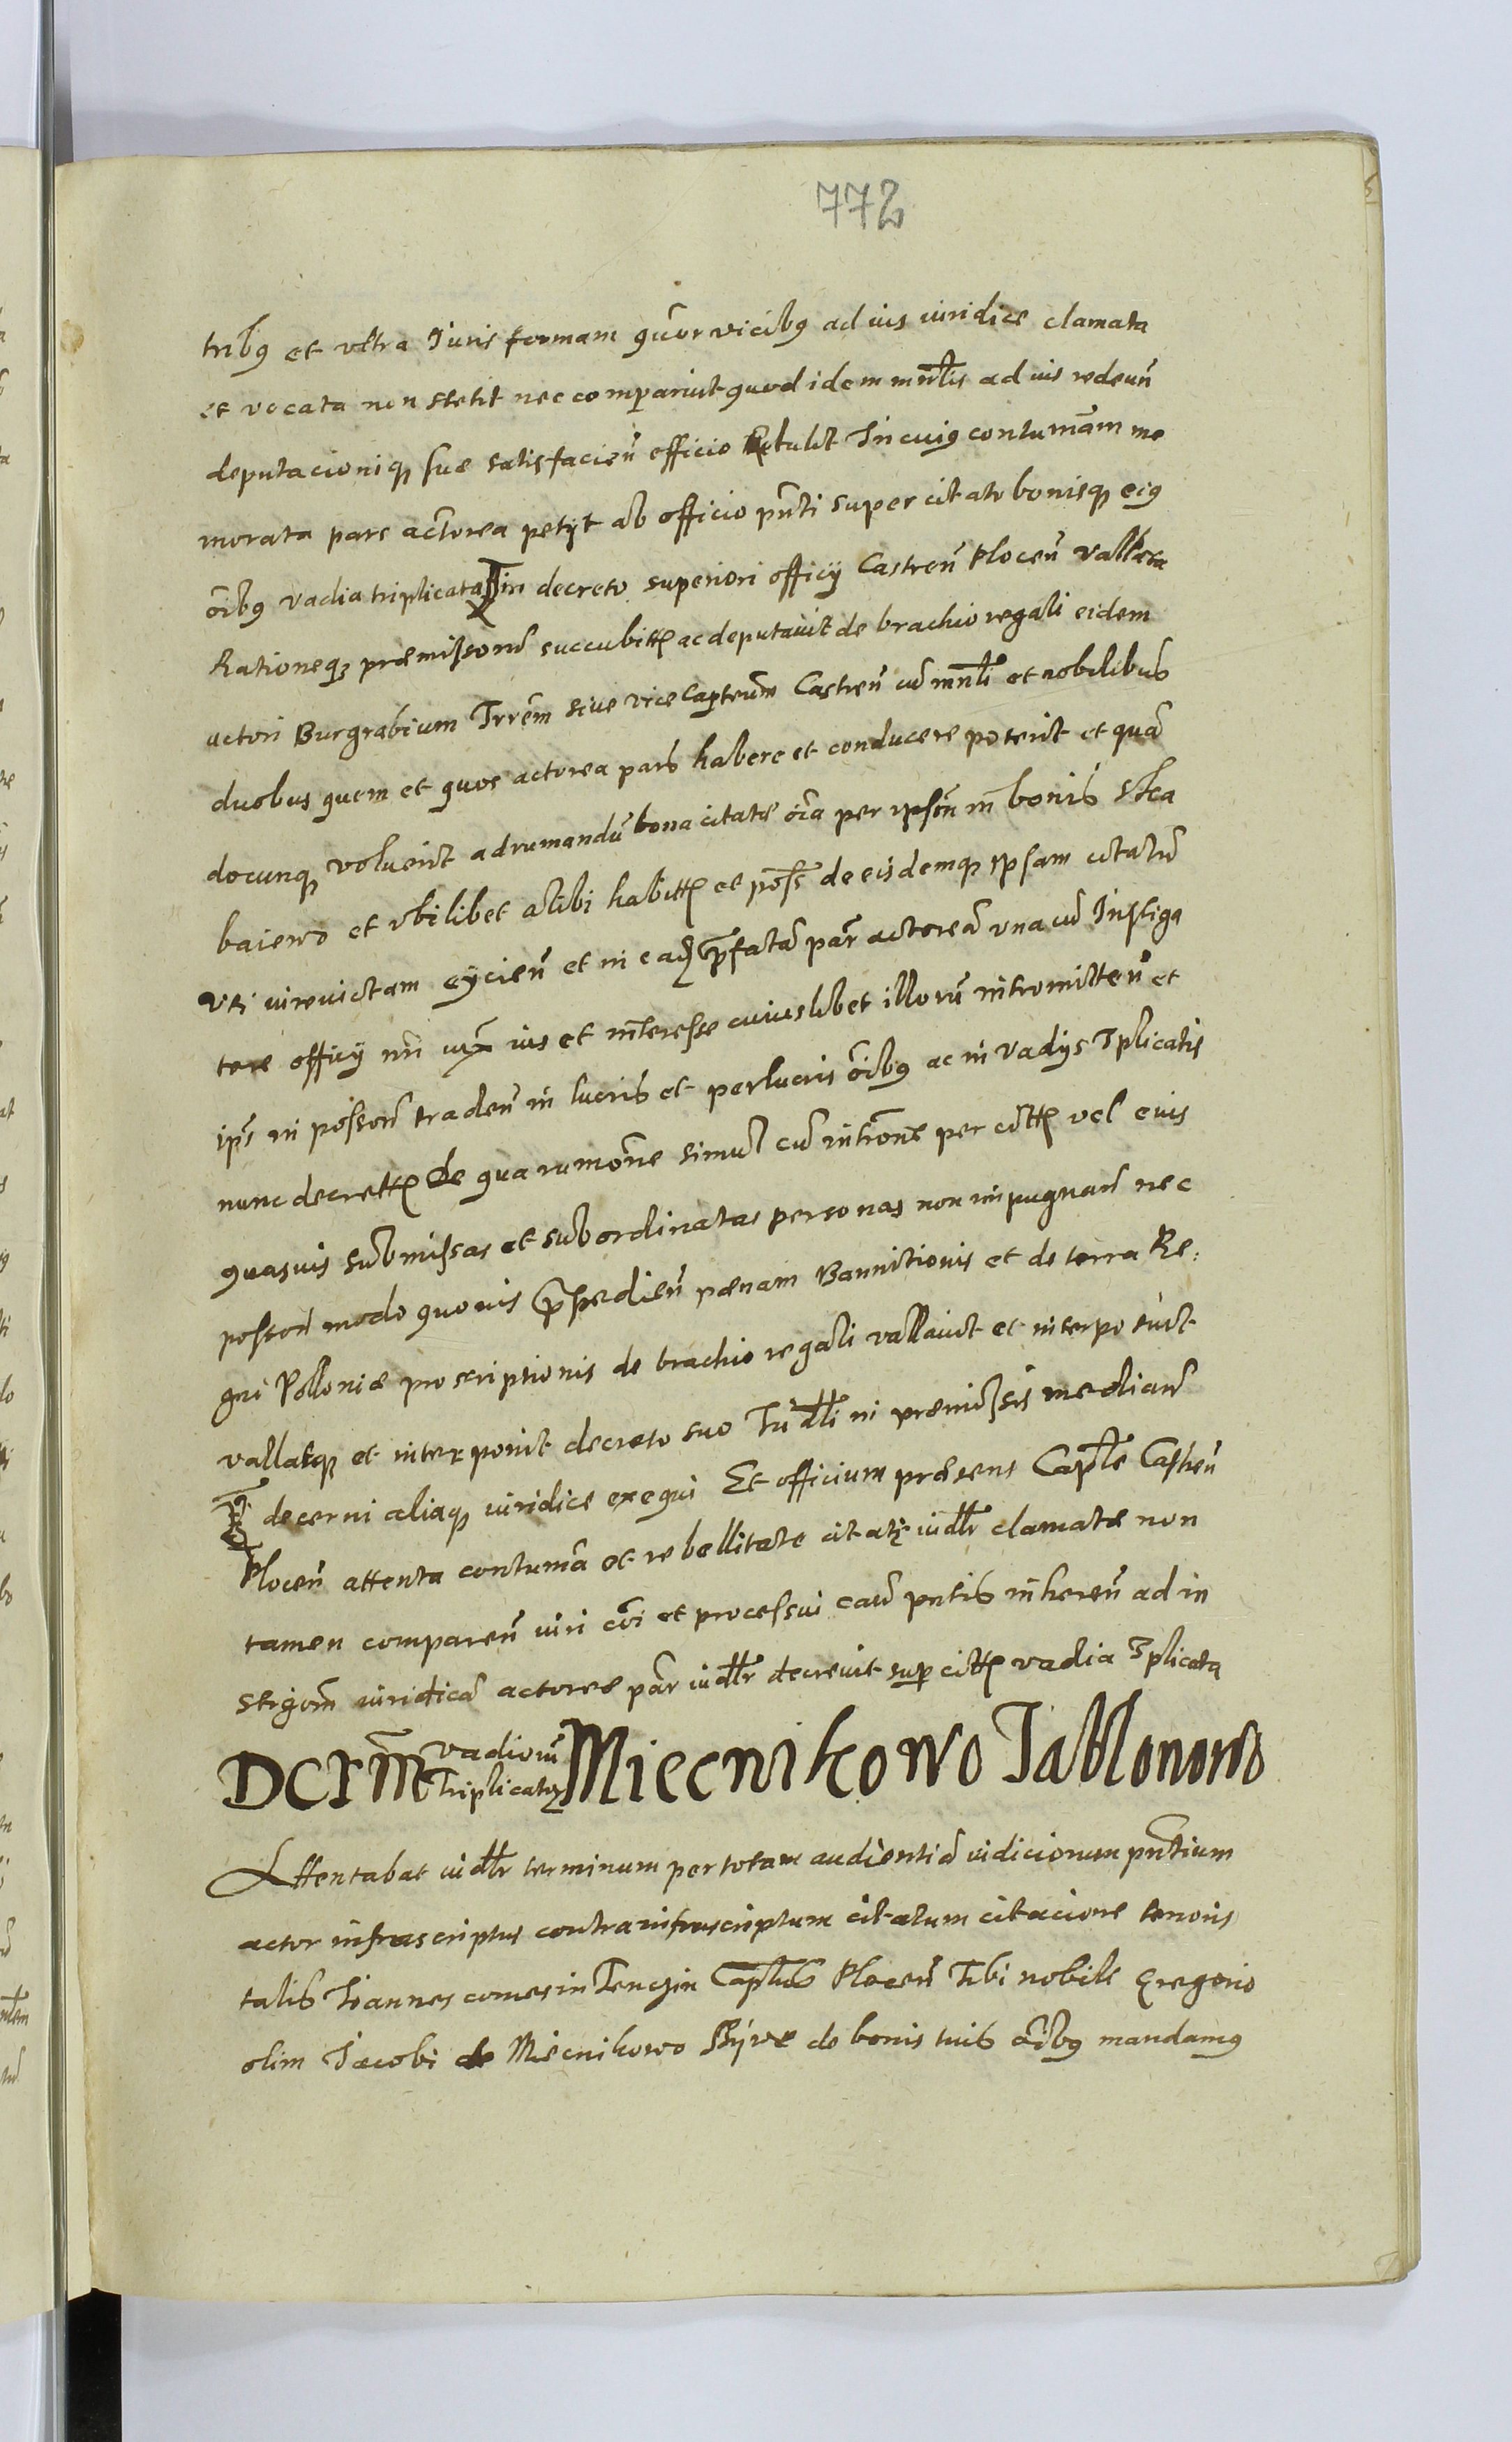 772
tribꝰ et vltra Iuris formam quōr vicibꝰ ad ius iuridice clamata
et vocata non stetit nec comparuit quod idem mnr̄lis ad ius redeun̄
deputacioniqꝫ suæ satisfacien̄ officio retulit In cuiꝰ contumām me
morata pars actorea petijt ab officio pn̄ti super citato bonisqꝫ eiꝰ
oībꝰ vadia triplicata in decreto superiori officij Castren̄ Plocen̄ vallata
Rationeqꝫ præmissorū succubitt ac deputauit de brachio regali eidem
actori Burgrabium Trrēm siue viceCapteūm Castren̄ cū mnr̄li et nobilibus
duobus quem et quos actorea pars habere et conducere poterit et quā
docunqꝫ voluerit ad rumandū bona citatæ oīa per ipsam in bonis
baiewo et vbilibet alibi habitt et poss̄ de eisdemqꝫ ipsam citatam
vti iure victam eijcien̄ et in ea p̄fatā par̄ actoreā vna cū Instiga
tore officij nr̄i ius et interesse cuiuslibet illorū intromitten̄ et
ip̄s in posson̄ traden̄ in lucris et perlucris oībꝰ ac in vadijs 3plicatis
nunc decrett de qua rumōne simul cū intrōne per citt vel eius
quasuis submissas et subordinatas personas non impugnan̄ nec
posson̄ modo quouis p̄pedien̄ pænam Bannitionis et de terra Re:
gni Poloniæ proscriptionis de brachio regali vallauit et interposuit
vallatqꝫ et interponit decreto suo Iudlī in præmissis median̄
decerni aliaqꝫ iuridice exequi Et officium præsens Capt̄le Castren̄
Plocen̄ attenta contumā et rebellitate citatę iudlr̄ clamatæ non
tamen comparen̄ iuri cōi et processui caū pn̄tis inheren̄ ad in
stigōm iuridicā actoreæ par̄ iudlr̄ decreuit super citt vadia 3plicata
DCRTM vadiorū triplicatorꝝ Miecnikowo Iablonowo
Attentabat iudlr̄ terminum per totam audientiā iudiciorum pn̄tium
actor infrascriptus contra infrascriptum citatum citacione tenoris
talis Ioannes comes in Tenczin Capt̄us Plocen̄ Tibi nobile Gregorio
olim Iacobi de Miecnikowo de bonis tuis oībꝰ mandamꝰ